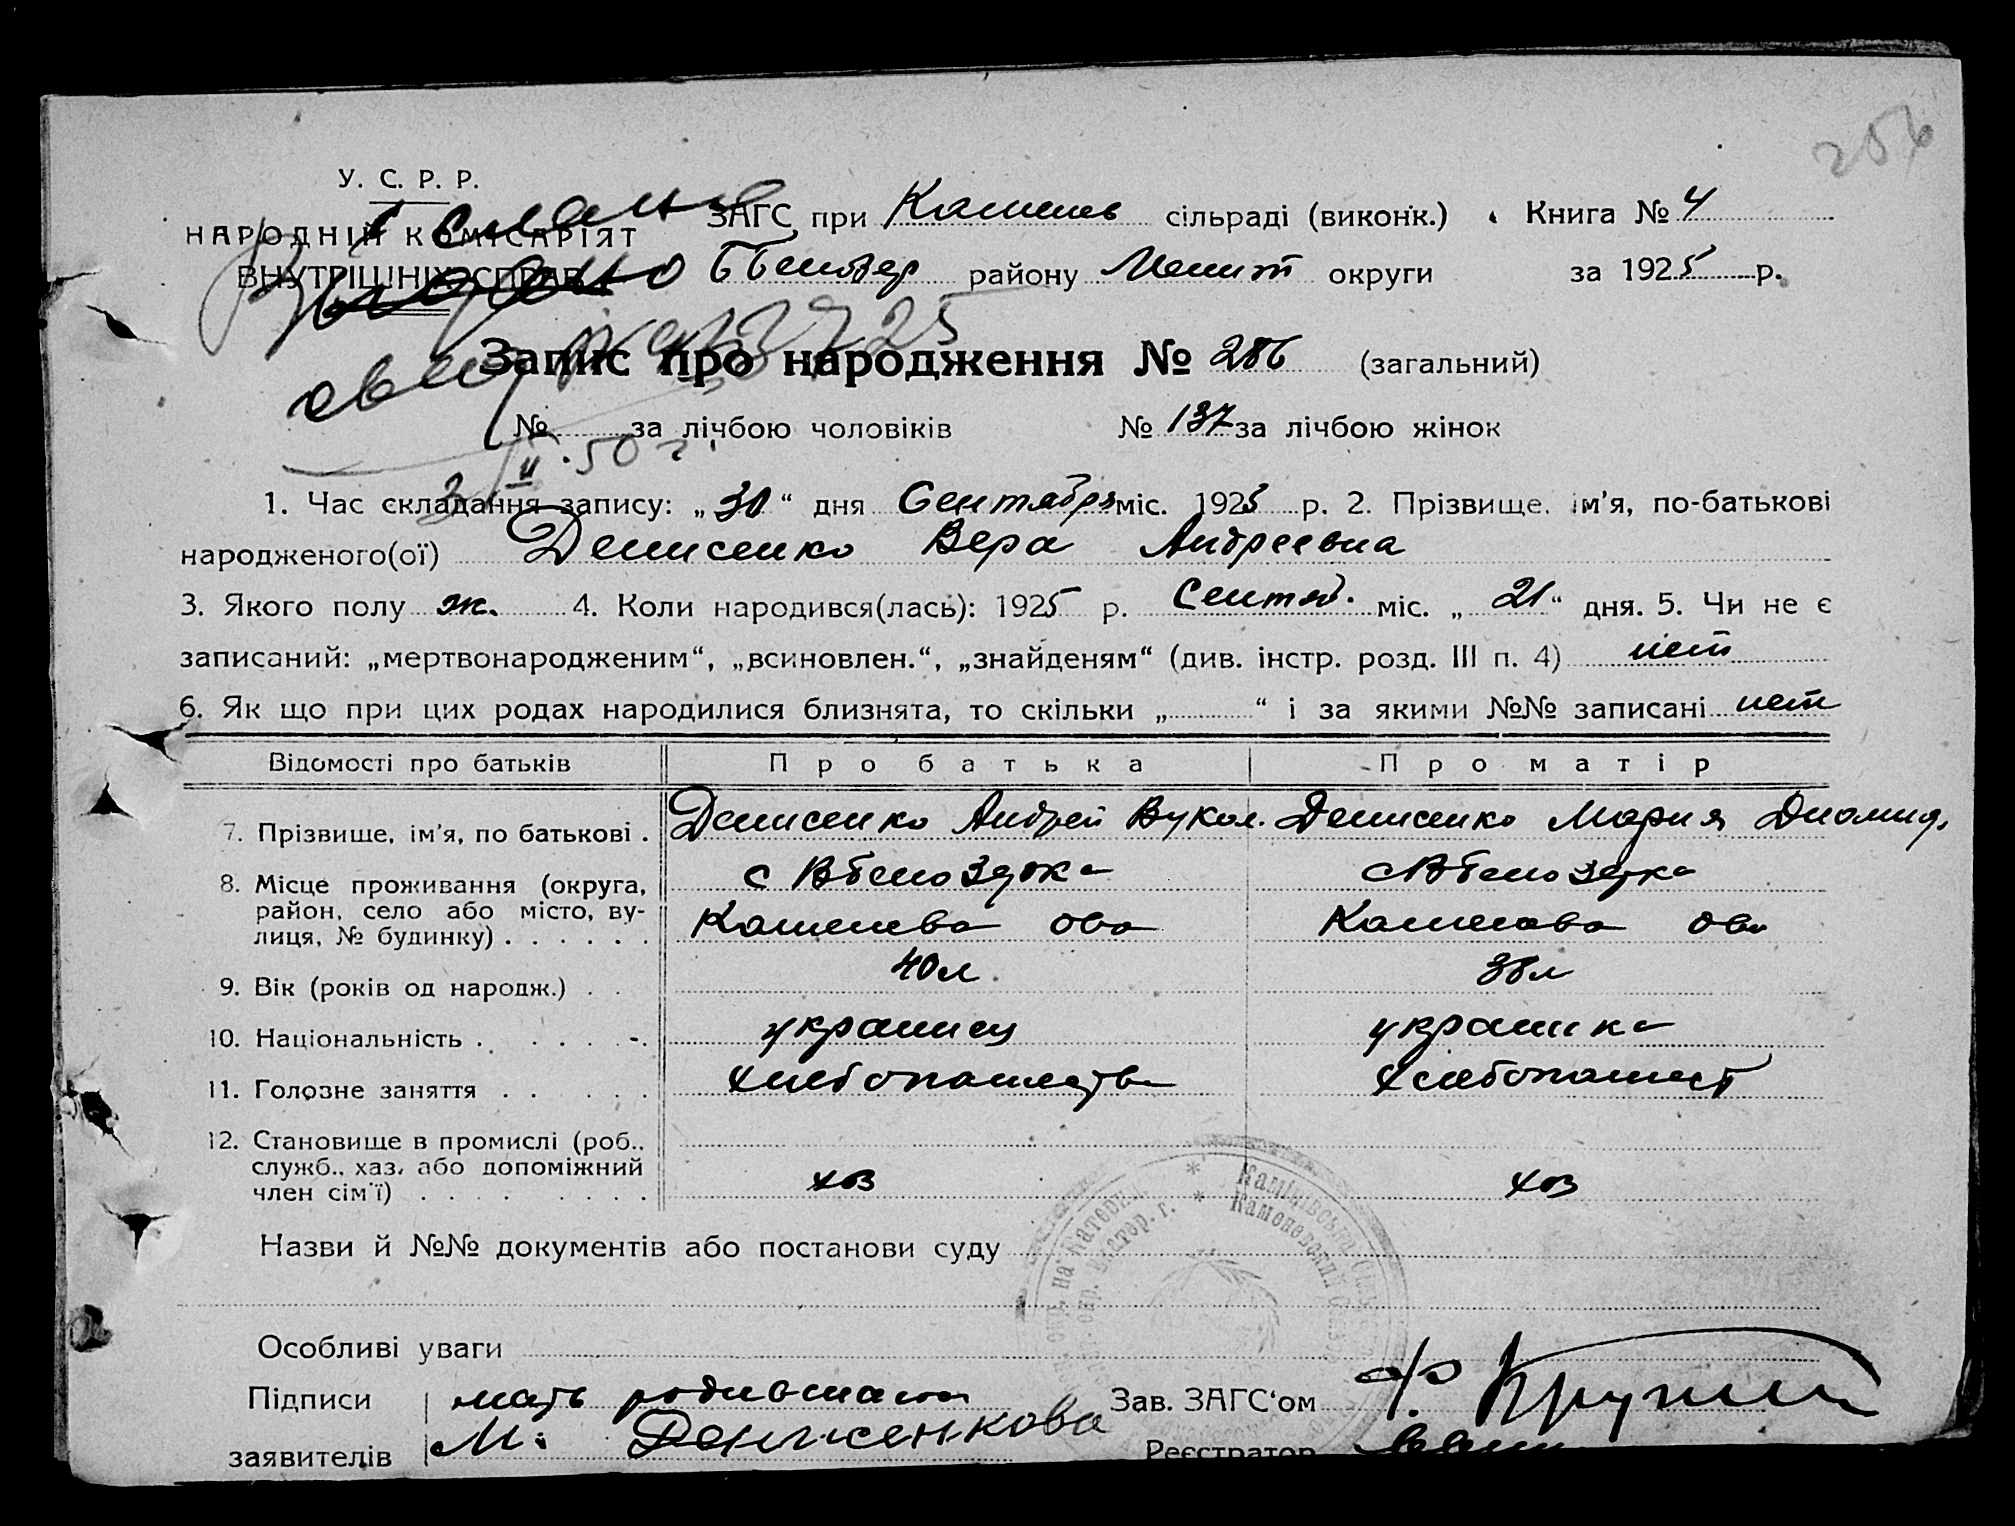 286
У. С. Р. Р.
НАРОДНІЙ КОМІСАРІЯТ
ВНУТРІШНІХ СПРАВ
Выдано
ЗАГС при Каменев сільраді (виконк.) Книга № 4
району Мелит округи за 1925 р.
Запис про народження № 286 (загальний)
№ за лічбою чоловіків № 137 за лічбою жінок
3/II 50 г.
1. Час складання запису: „30“ дня Сентября міс. 1925 р. 2. Прізвище, ім'я, по-батькові
народженого(ої) Денисенко Вера Андреевна
3. Якого полу ж. 4. Коли народився(лась): 1925 р. Сентяб. міс. „21“ дня. 5. Чи не є
записаний: „мертвонародженим“, „всиновлен.“, „знайденям“ (див. інстр. розд. III п. 4) нет
6. Як що при цих родах народилися близнята, то скільки „ “ і за якими №№ записані нет
Відомості про батьків Про батька Про матір
7. Прізвище, ім'я, по батькові . Денисенко Андрей Вукол. Денисенко Мария Диомид.
8. Місце проживання (округа, район, село або місто, вулиця, № будинку) . . . . . . с Вбелозерка с Вбелозерка
Каменева Каменева
9. Вік (років од народж.) . . 40 л. 38 л
10. Національність . . . . . украинец украинка
11. Головне заняття . . . . . хлебопашество хлебопашест
12. Становище в промислі (роб., служб., хаз. або допоміжний член сім'ї) . . . . . . . хоз хоз
Назви й №№ документів або постанови суду
Особливі уваги
Підписи мать родившая Зав. ЗАГС'ом
заявителів М. Денисенкова Реєстратор